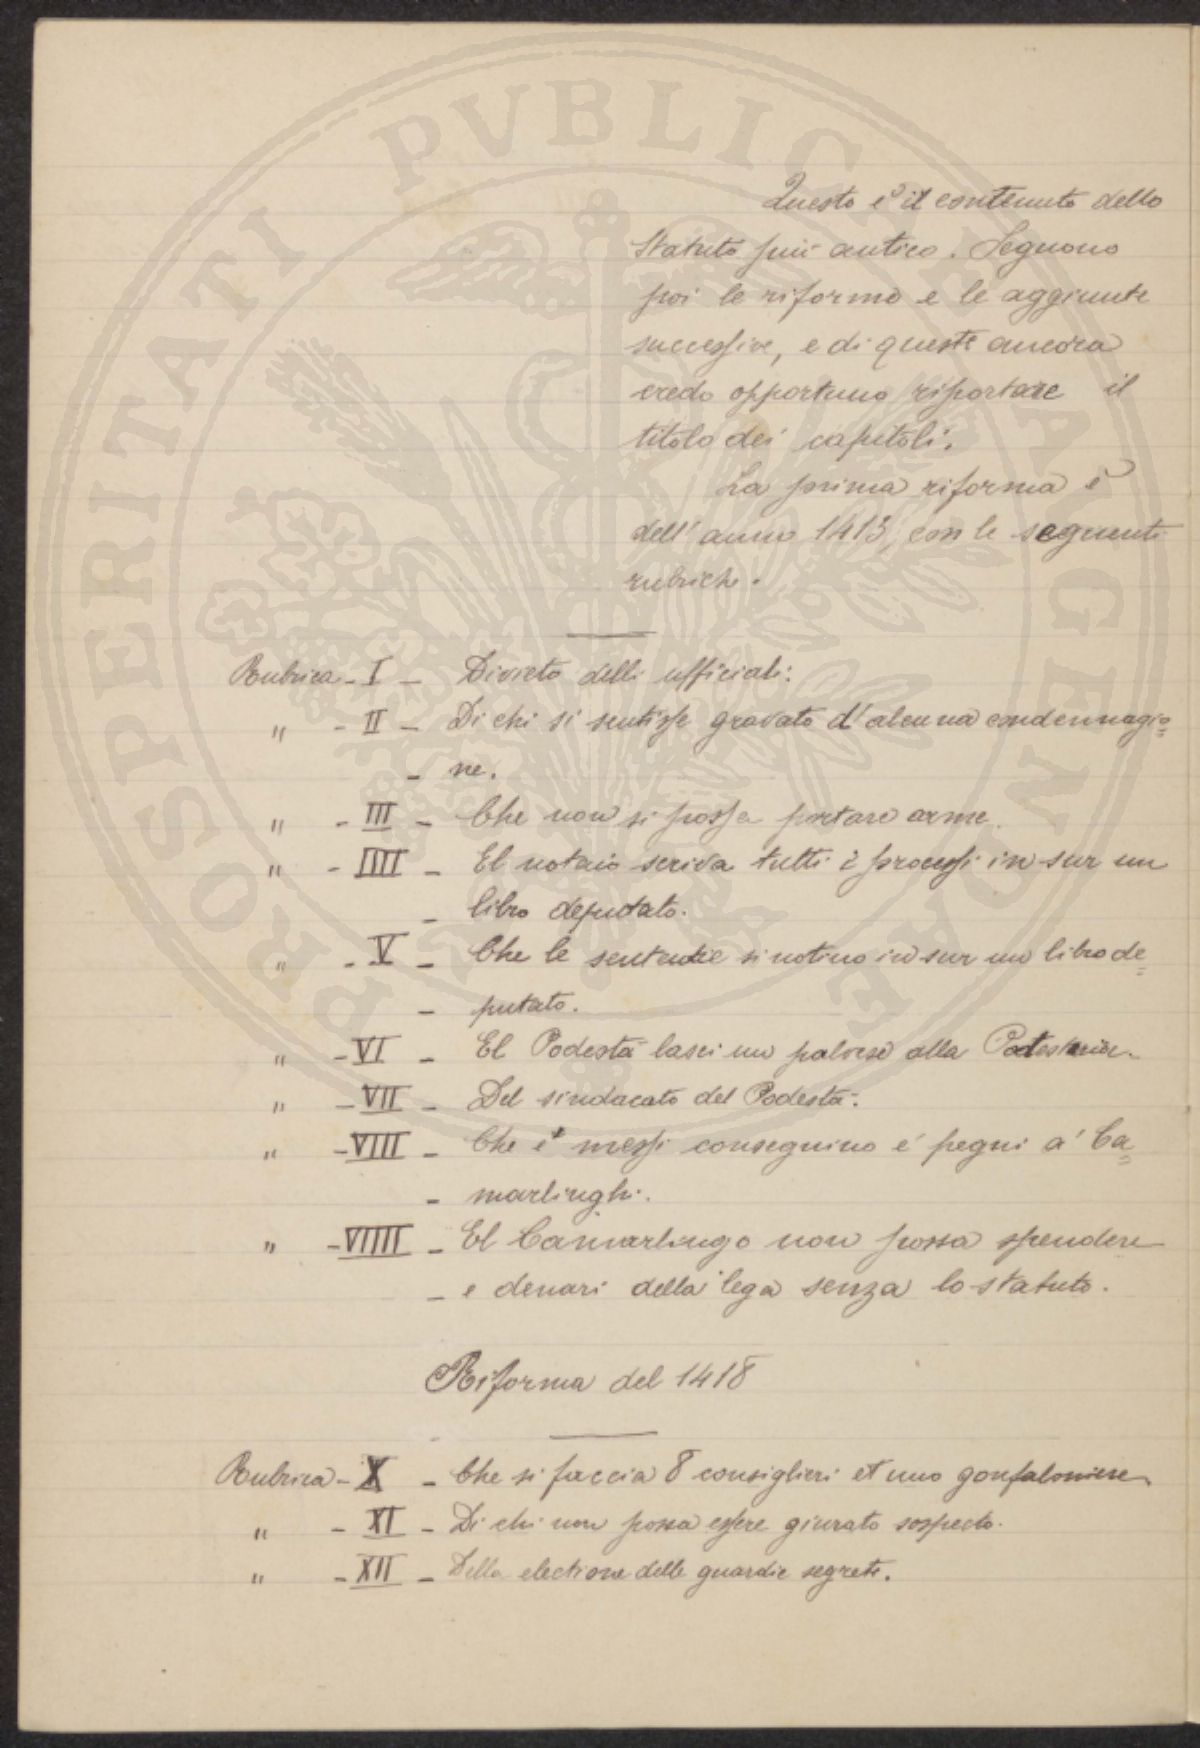 Questo è il contenuto dello
Statuto più antico. Seguono
poi le riforme e le aggiunte
successive, e di queste ancora
credo opportuno riportare il
titolo dei capitoli.
La prima riforma è
dell'anno 1413, con le seguenti
rubriche.
Rubrica - I - Divieto delli ufficiali:
" - II - Di chi si sentisse gravato d'alcuna condennagio=
- ne.
" - III - Che non si possa portare arme.
" - IIII - El notaio scriva tutti i processi in sur un
- libro deputato.
" - V - Che le sentenze si notino in sur un libro de=
- putato.
" - VI - El Podestà lasci un palvese alla Potesteria.
" - VII - Del sindacato del Podestà.
" - VIII - Che e' messi conseguino e' pegni a' Ca=
- marlinghi.
" - VIIII - El Camarlingo non possa spendere
- e denari della lega senza lo statuto.
Riforma del 1418
Rubrica - X - Che si faccia 8 consiglieri et uno gonfaloniere
" - XI - Di chi non possa essere giurato sospecto.
" - XII - Della electione delle guardie segrete.
PROSPERITATI PVBLICAE AVGENDAE